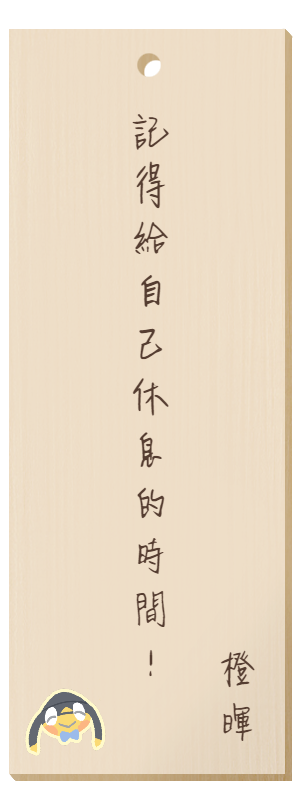 記得給自己休息的時間！
橙暉